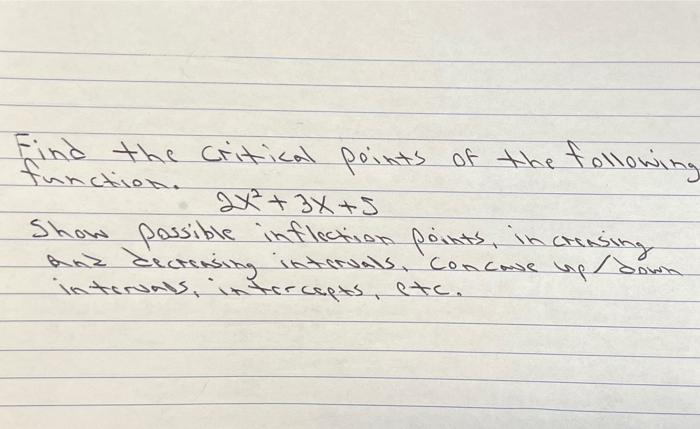 Find the critical points of the following
function.
2x²+3x+5
Show possible inflection points, increasing
and decreasing intervals, concave up/down
intervals, intercepts, etc.